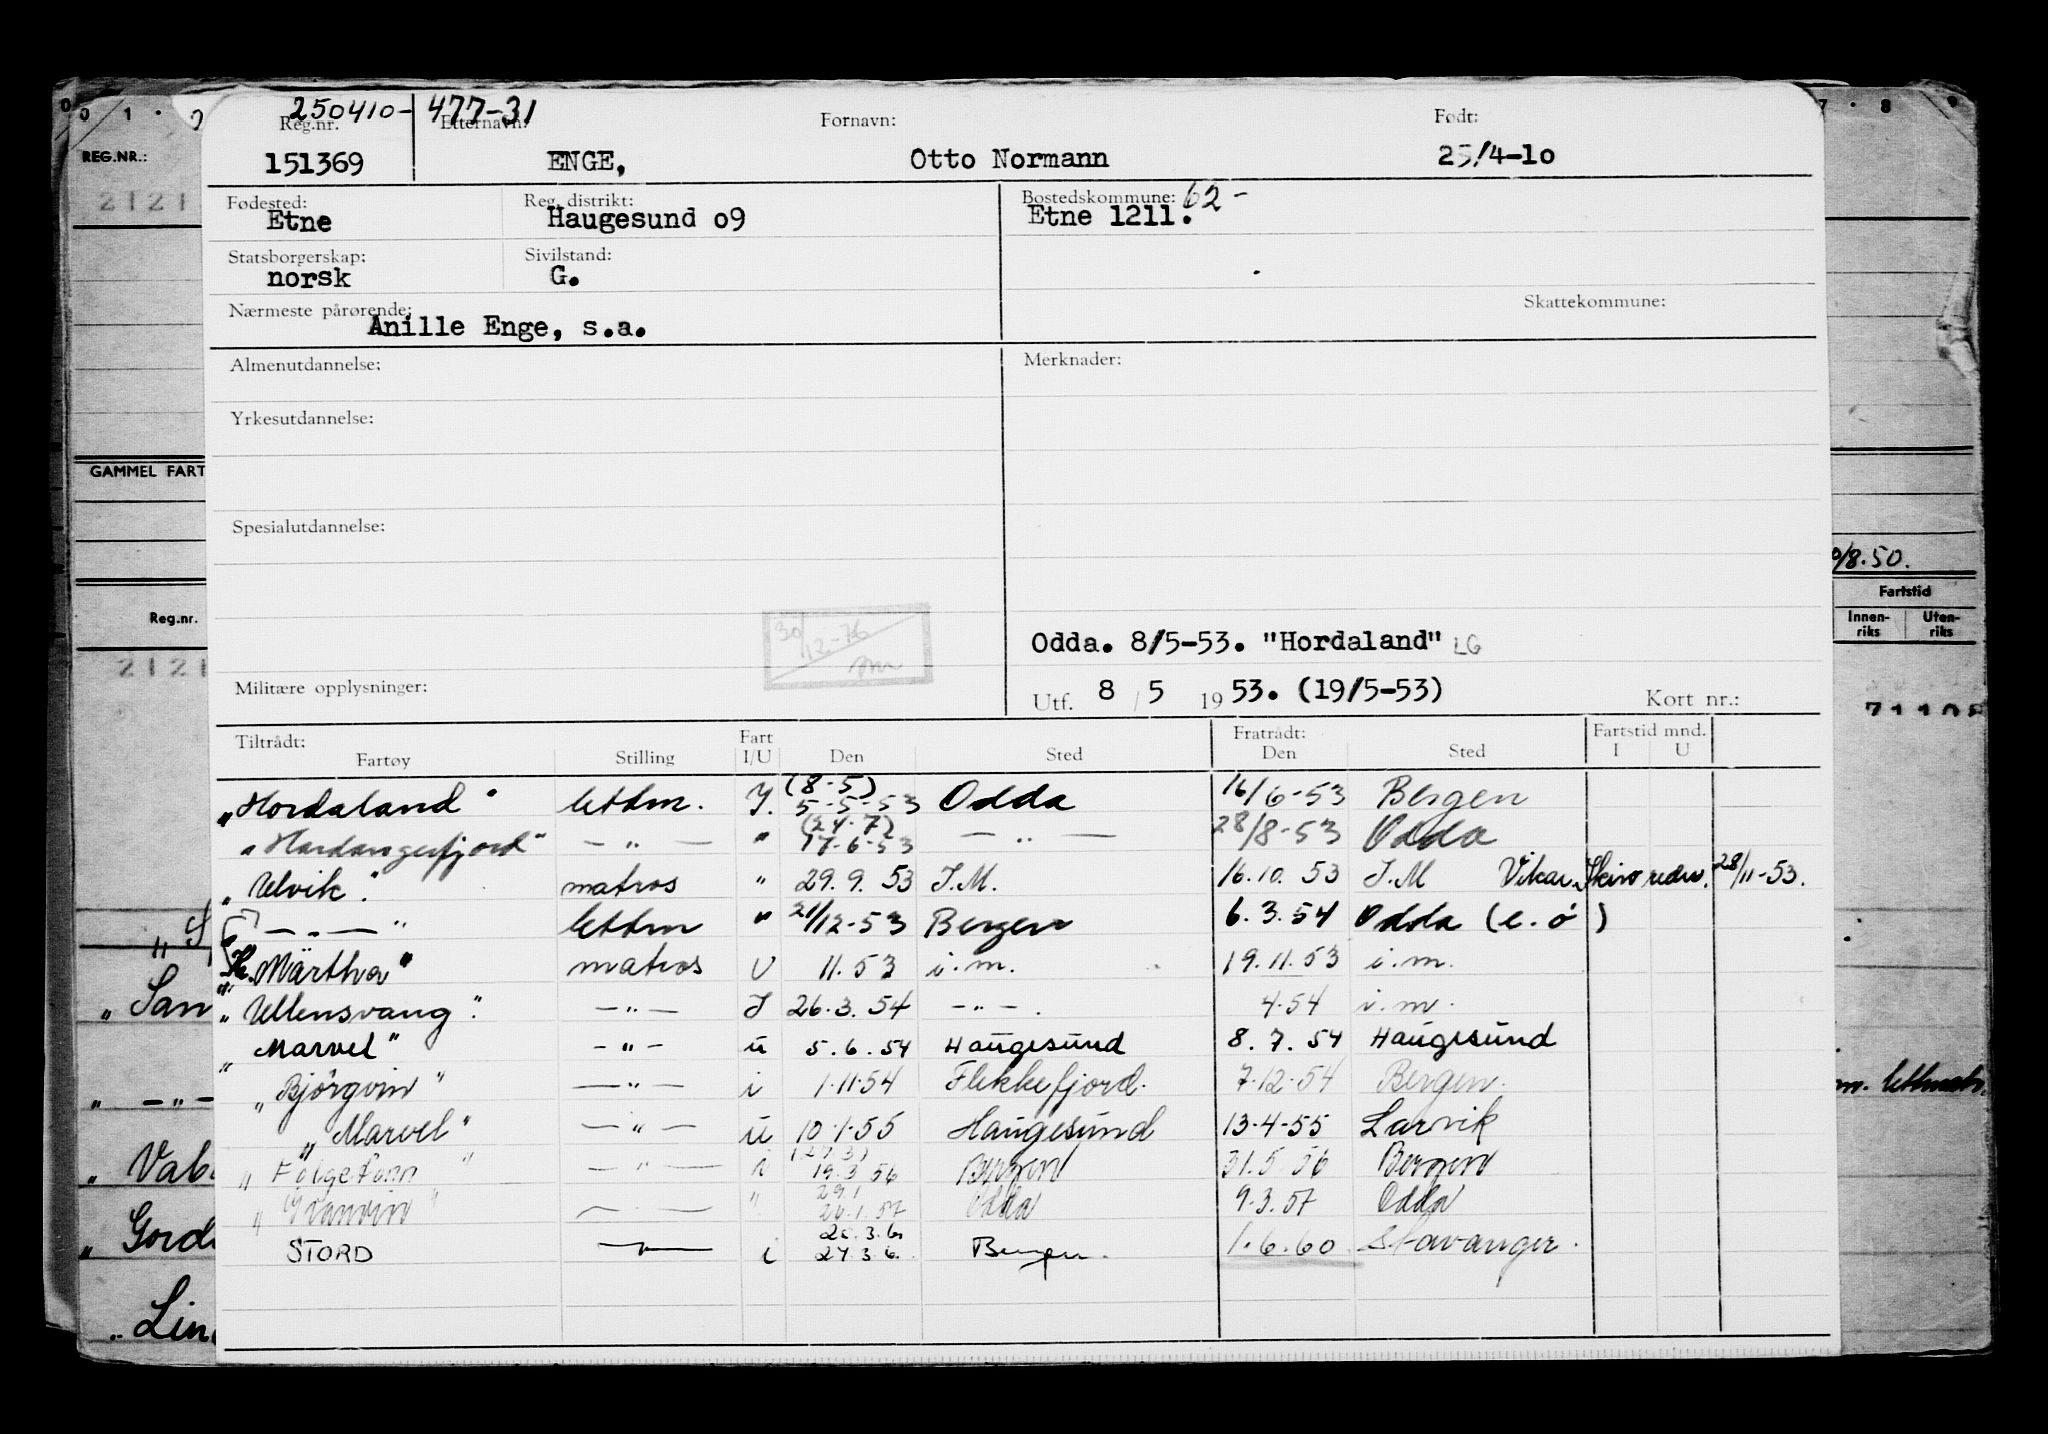 250410- 477-31
Reg.nr. Etternavn: Fornavn: Født:
151369 ENGE, Otto Normann 25/4-10
Fødested: Reg. distrikt: Bostedskommune: 62-
Etne Haugesund o9 Etne 1211.
Statsborgerskap: Sivilstand:
norsk G.
Nærmeste pårørende: Skattekommune:
Anille Enge, s.a.
Almenutdannelse: Merknader:
Yrkesutdannelse:
Spesialutdannelse:
30/12-76
Odda. 8/5-53. "Hordaland" LG
Militære opplysninger: Utf. 8 / 5 19 53. (19/5-53) Kort nr.:
Tiltrådt: Fart Fratrådt: Fartstid mnd.
Fartøy Stilling I/U Den Sted Den Sted I U
(8-5)
"Hordaland" lettm. I. 5-5-53 Odda 16/6-53 Bergen
(24.7)
"Hardangerfjord" — " — " 17-6-53 — " — 28/8-53 Odda
"Ulvik". matros " 29.9.53 I.M. 16.10.53 I.M Vikar. 28/11-53.
— " — " lettm " 21/12-53 Bergen 6.3.54 Odda (e.ö)
"Märtha" matros U 11.53 i.m. 19.11.53 i.m.
"Ullensvang". — " — I 26.3.54 — " — . 4.54 i.m.
"Marvel" — " — u 5.6.54 Haugesund 8.7.54 Haugesund
"Bjørgvin" — " — i 1.11.54 Flekkefjord. 7.12.54 Bergen.
"Marvel" — " — u 10.1.55 Haugesund 13-4-55 Larvik
(27.3)
"Folgefonn" — " — i 19.3.56 Bergen 31.5.56 Bergen
29.1
"Granvin" — " — " 26.1.57 Odda 9.3.57 Odda
STORD — " — i 27.3.6. Bergen. 1.6.60. Stavanger.
REG.NR.:
2121
GAMMEL FART
Reg.nr.
2121
"San
" — " —
"Gord
"Lin
7 · 8 9
/8.50.
Fartstid
Innenriks Utenriks
m. lettmatr.